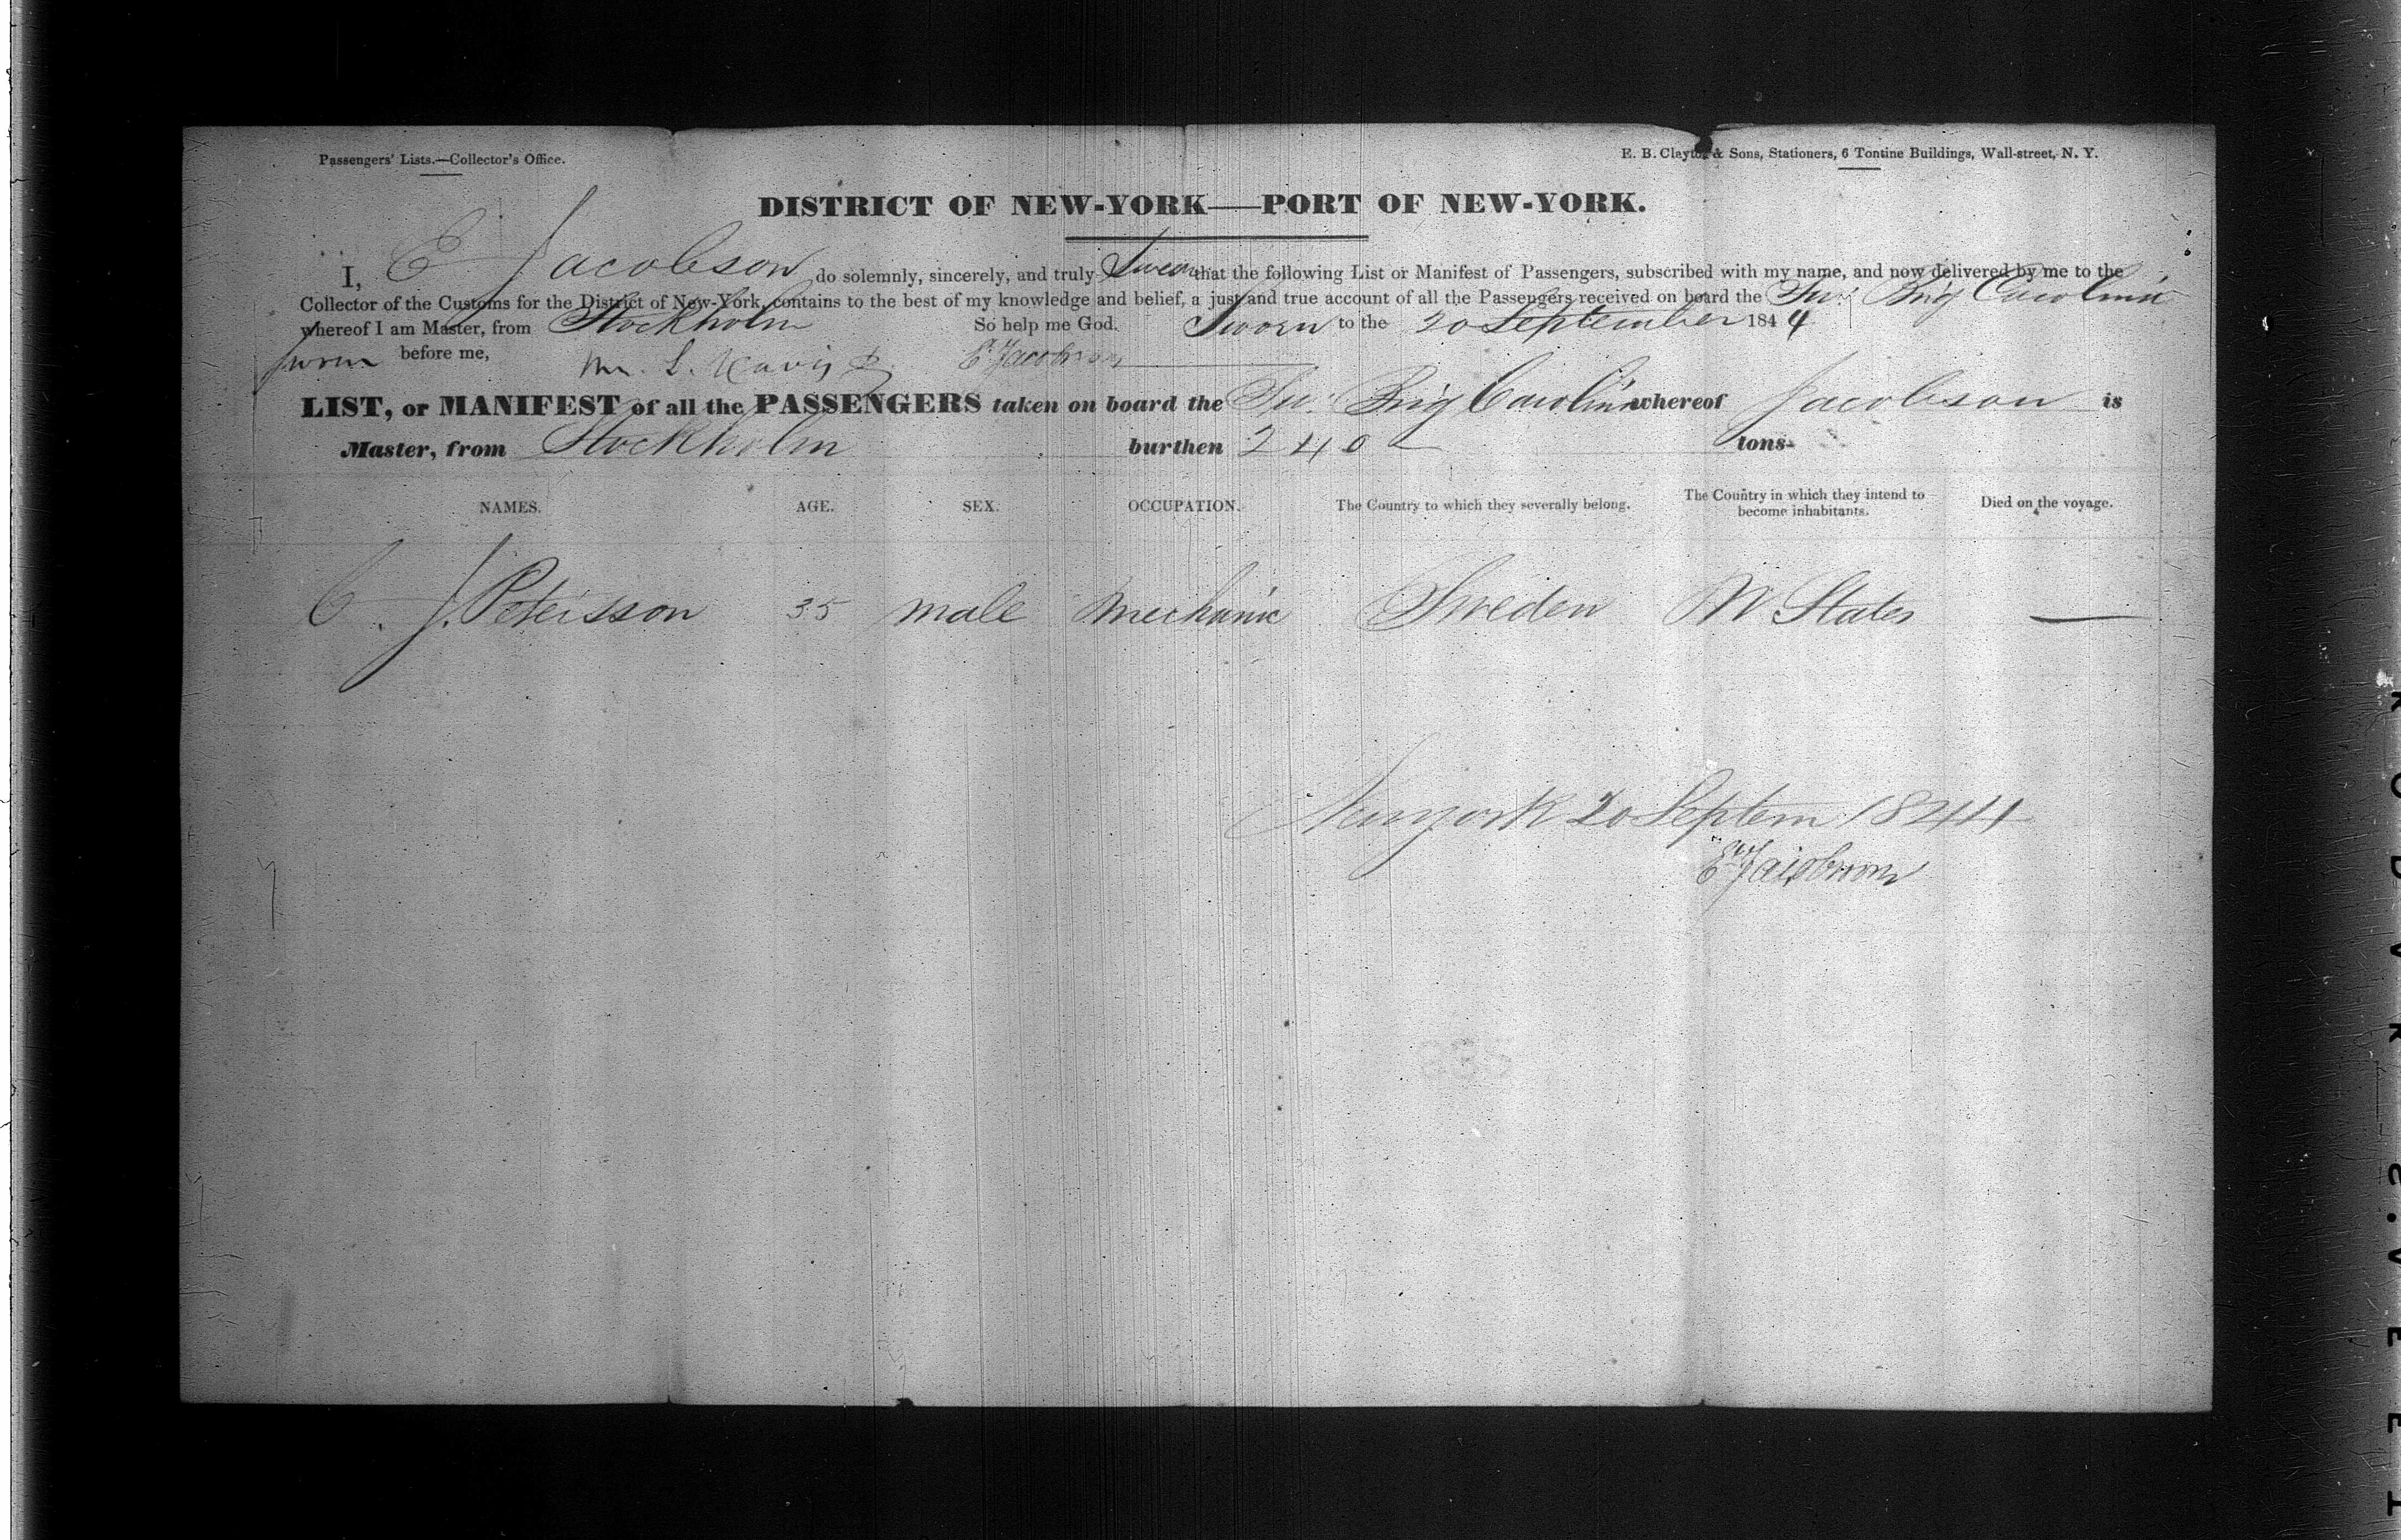 Passengers' Lists.—Collector's Office.
E. B. Clayton & Sons, Stationers, 6 Tontine Buildings, Wall-street, N. Y.
DISTRICT OF NEW-YORK—PORT OF NEW-YORK.
I, E Jacobson do solemnly, sincerely, and truly Swear that the following List or Manifest of Passengers, subscribed with my name, and now delivered by me to the
Collector of the Customs for the District of New-York, contains to the best of my knowledge and belief, a just and true account of all the Passengers received on board the Sw: Brig Carolina
whereof I am Master, from Stockholm So help me God. Sworn to the 20 September 1844
sworn before me, E Jacobson
LIST, or MANIFEST of all the PASSENGERS taken on board the Sw: Brig Carolina whereof Jacobson is
Master, from Stockholm burthen 240 tons.
NAMES. AGE. SEX. OCCUPATION. The Country to which they severally belong. The Country in which they intend to become inhabitants. Died on the voyage.
C. J. Petersson 35 male mechanic Sweden U States —
Newyork 20 Septem 1844
E Jacobson